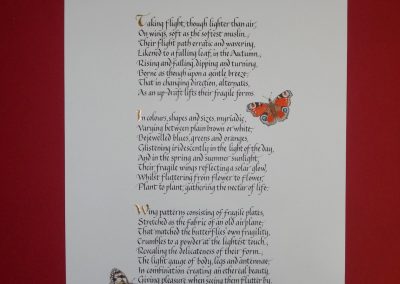 Taking flight, though lighter than air,
On wings, soft as the softest muslin,
Their flight path erratic and wavering,
Likened to a falling leaf, in the Autumn,
Rising and falling, dipping and turning,
Borne as though upon a gentle breeze,
That in changing direction, alternates,
As an up-draft lifts their fragile forms.
In colours, shapes and sizes, myriadic,
Varying between plain brown or white,
Bejewelled blues, greens and oranges,
Glistening iridescently in the light of the day,
And in the spring and summer sunlight,
Their fragile wings reflecting a solar glow,
Whilst fluttering from flower to flower,
Plant to plant, gathering the nectar of life.
Wing patterns consisting of fragile plates,
Stretched as the fabric of an old airplane,
That matched the butterflies own fragility,
Crumbles to a powder at the lightest touch,
Revealing the delicateness of their form,
The light gauge of body, legs and antennae,
In combination creating an ethereal beauty,
Giving pleasure when seeing them flutter by.